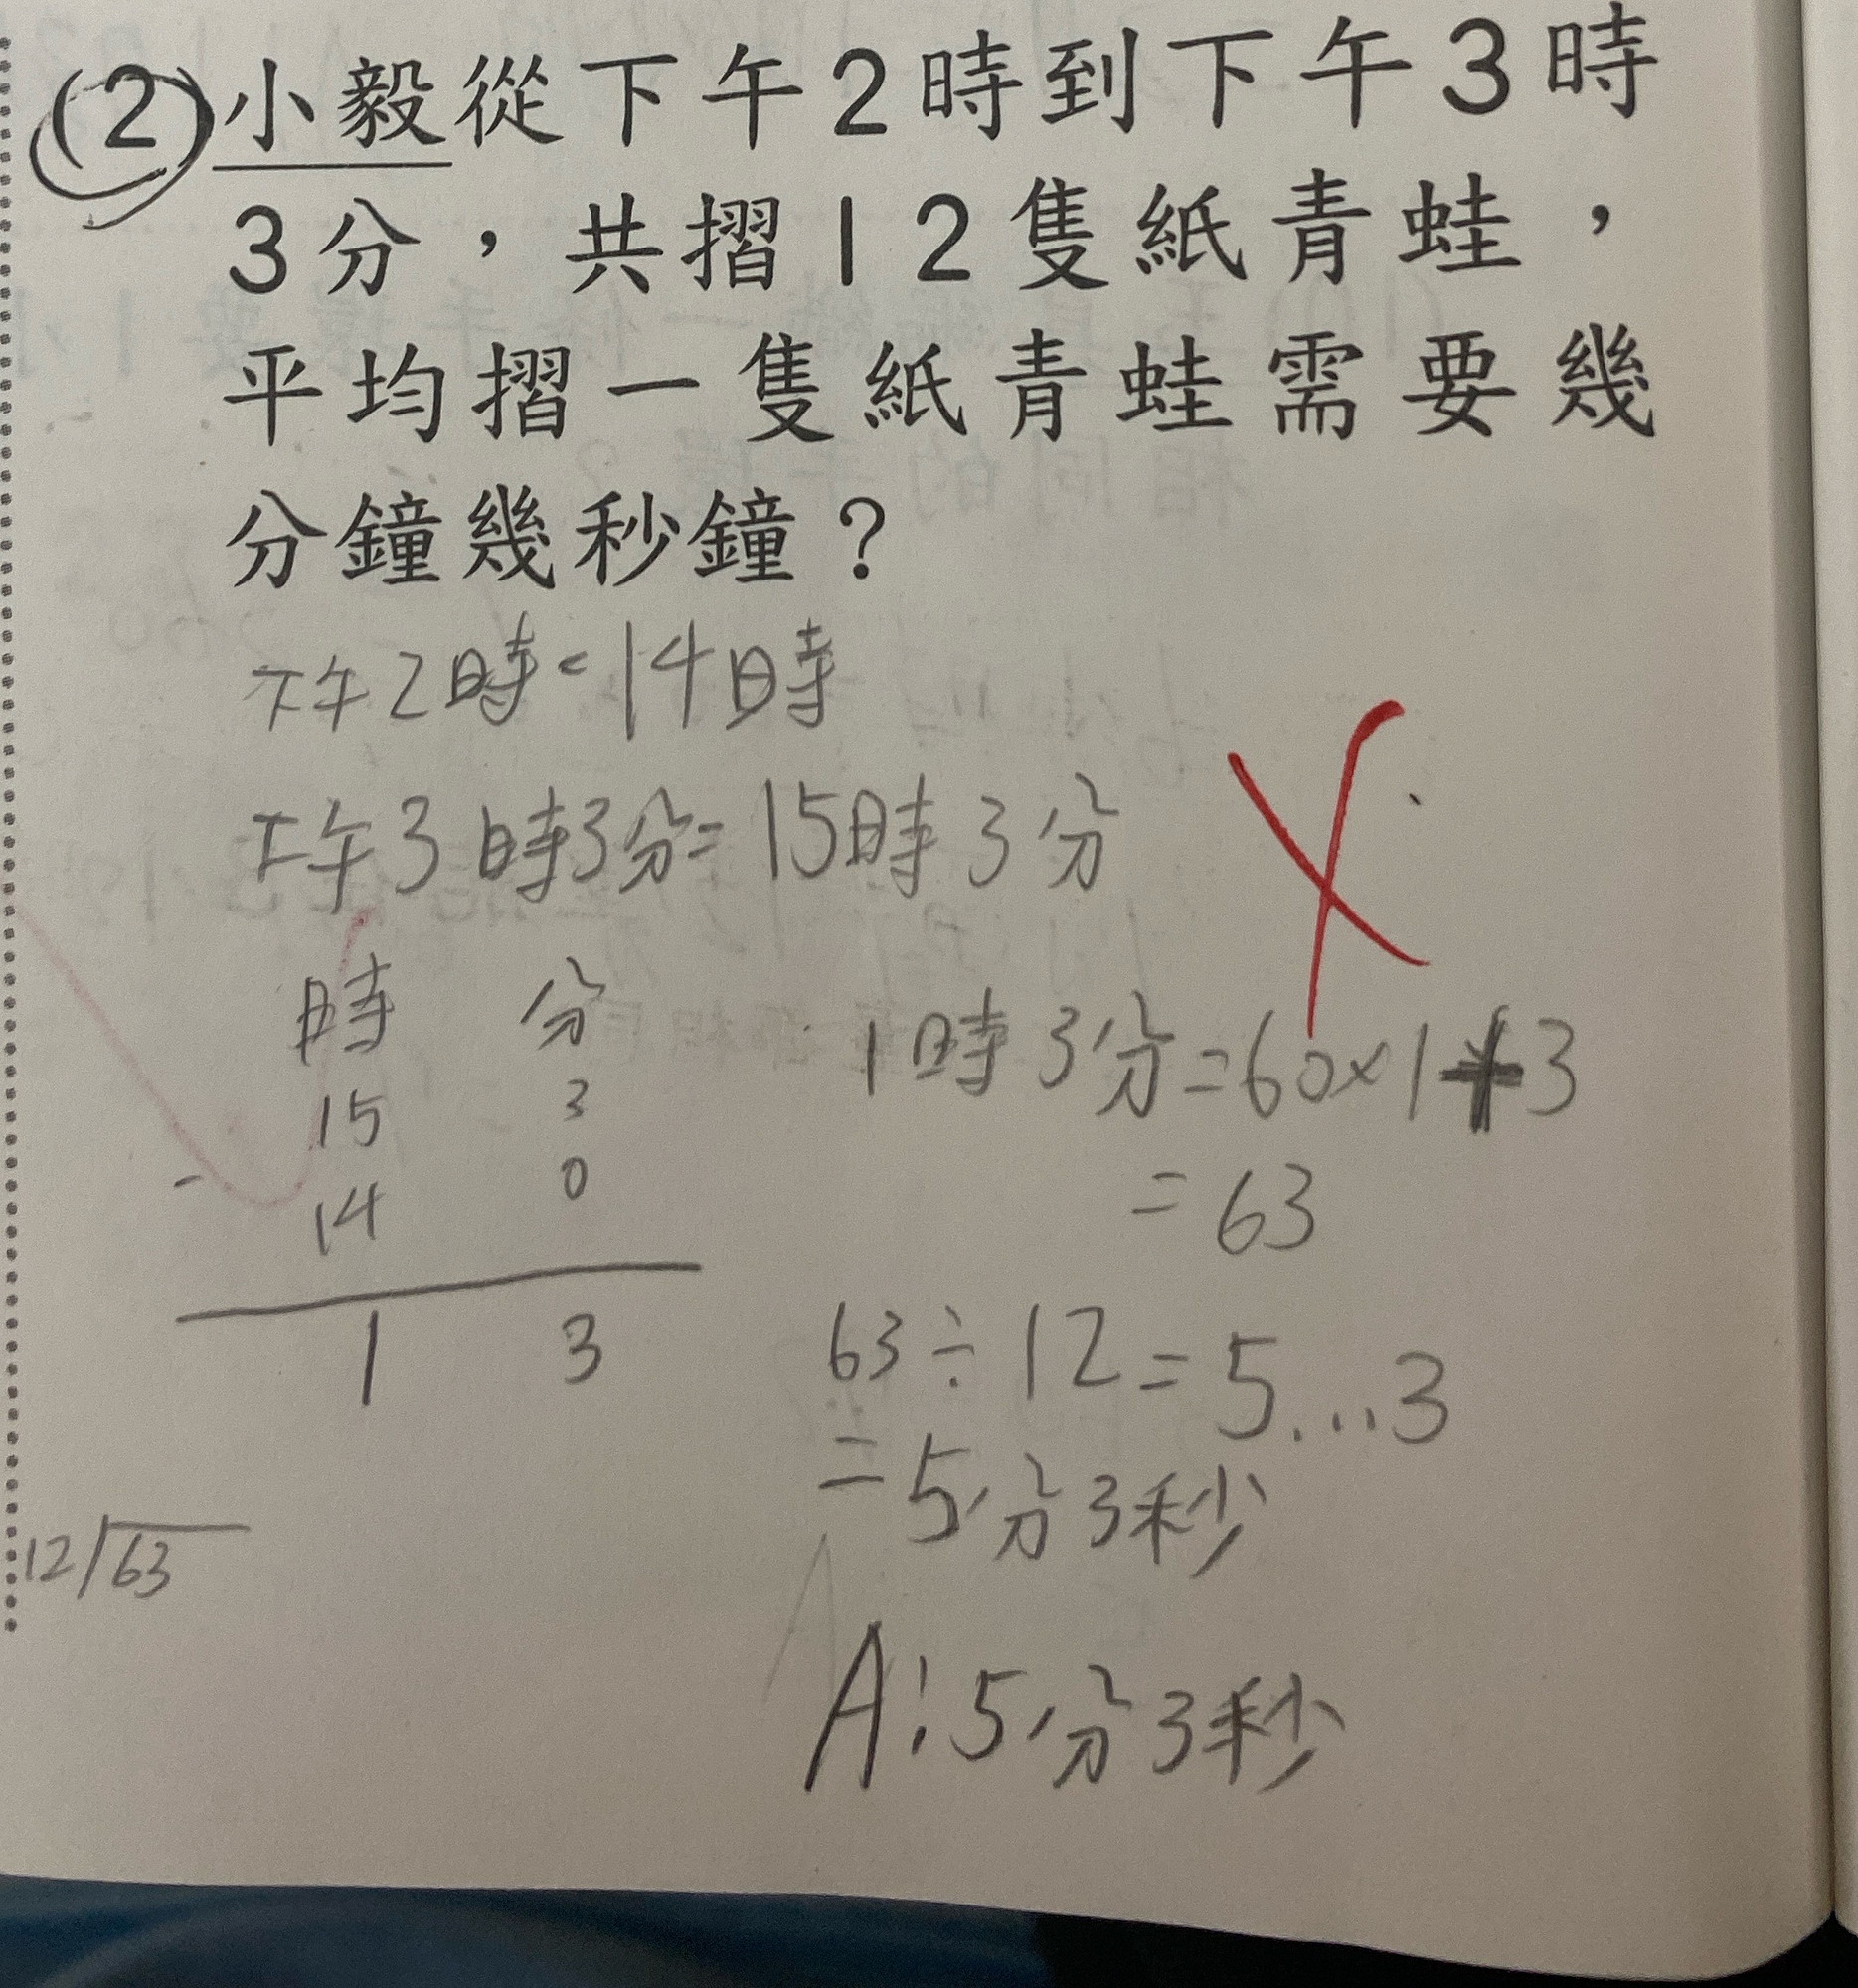 (2)小毅從下午2時到下午3時
3分，共摺12隻紙青蛙，
平均摺一隻紙青蛙需要幾
分鐘幾秒鐘？
下午2時=14時
下午3時3分=15時3分
時 分
15 3
- 14 0
1 3
1時3分=60×1+3
=63
63÷12=5...3
=5分3秒
12/63
A:5分3秒